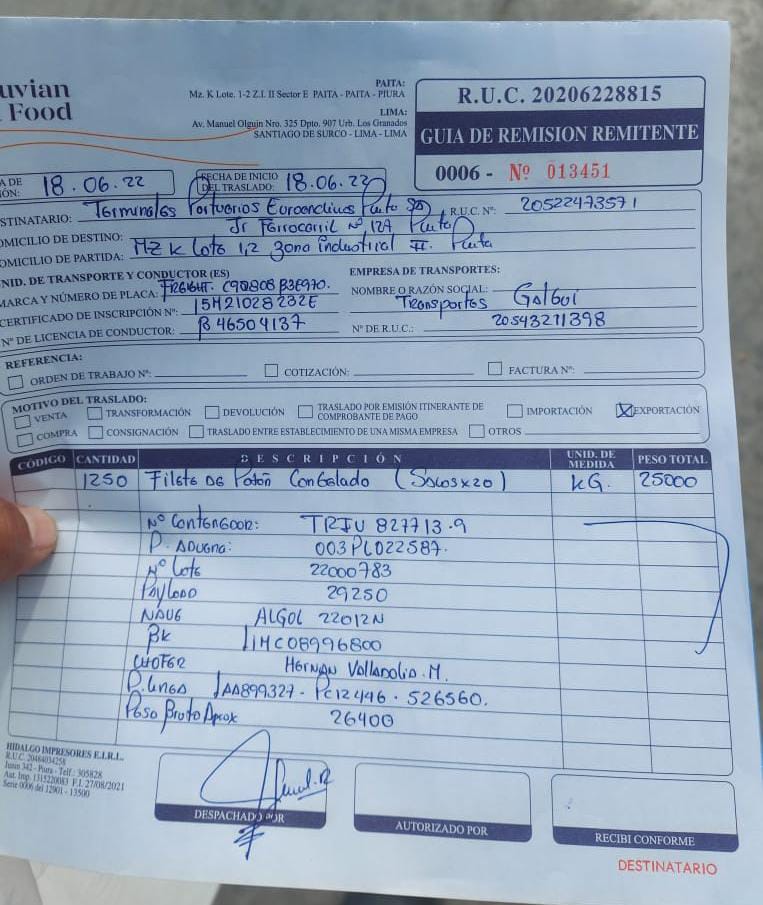 uvian
Food
PAITA:
Mz. K Lote. 1-2 Z.I. II Sector E PAITA - PAITA - PIURA
LIMA:
Av. Manuel Olguin Nro. 325 Dpto. 907 Urb. Los Granados
SANTIAGO DE SURCO - LIMA - LIMA
R.U.C. 20206228815
GUIA DE REMISION REMITENTE
0006 - Nº 013451
A DE
IÓN: 18.06.22
FECHA DE INICIO
DEL TRASLADO: 18.06.22
STINATARIO: Terminales Portuarios Euroandinos Paita R.U.C. Nº: 20522473571
OMICILIO DE DESTINO: Jr Ferrocarril Nº 127 Paita
OMICILIO DE PARTIDA: MZ K Lote 1,2 zona industrial II. Paita
UNID. DE TRANSPORTE Y CONDUCTOR (ES)
MARCA Y NÚMERO DE PLACA: FREIGHT. C9Q808 B3E970.
CERTIFICADO DE INSCRIPCIÓN Nº: 15M21028232E
Nº DE LICENCIA DE CONDUCTOR: B46504137
EMPRESA DE TRANSPORTES:
NOMBRE O RAZÓN SOCIAL:
Transportes Galgui
Nº DE R.U.C.: 20543211398
REFERENCIA:
ORDEN DE TRABAJO Nº: COTIZACIÓN: FACTURA Nº:
MOTIVO DEL TRASLADO:
VENTA TRANSFORMACIÓN DEVOLUCIÓN TRASLADO POR EMISIÓN ITINERANTE DE COMPROBANTE DE PAGO IMPORTACIÓN EXPORTACIÓN
COMPRA CONSIGNACIÓN TRASLADO ENTRE ESTABLECIMIENTO DE UNA MISMA EMPRESA OTROS
CÓDIGO CANTIDAD DESCRIPCIÓN UNID. DE MEDIDA PESO TOTAL
1250 Filete De Potón Congelado (Sacosx20) KG. 25000
Nº Contenedor: TRIU 827713.9
P. Aduana: 003PL022587.
Nº Lote 22000783
Payload 29250
Nave ALGOL 22012N
BK LIMC08996800
CHOFER Hernan Valladolid. M.
P. Linea AA899327 - PC12446 - 526560.
Peso Bruto Aprox 26400
HIDALGO IMPRESORES E.I.R.L.
R.U.C. 20484034258
Junin 342 - Piura - Telf.: 305828
Aut. Imp. 1315220083 F.I. 27/08/2021
Serie 0006 del 12901 - 13500
DESPACHADO POR
AUTORIZADO POR
RECIBI CONFORME
DESTINATARIO